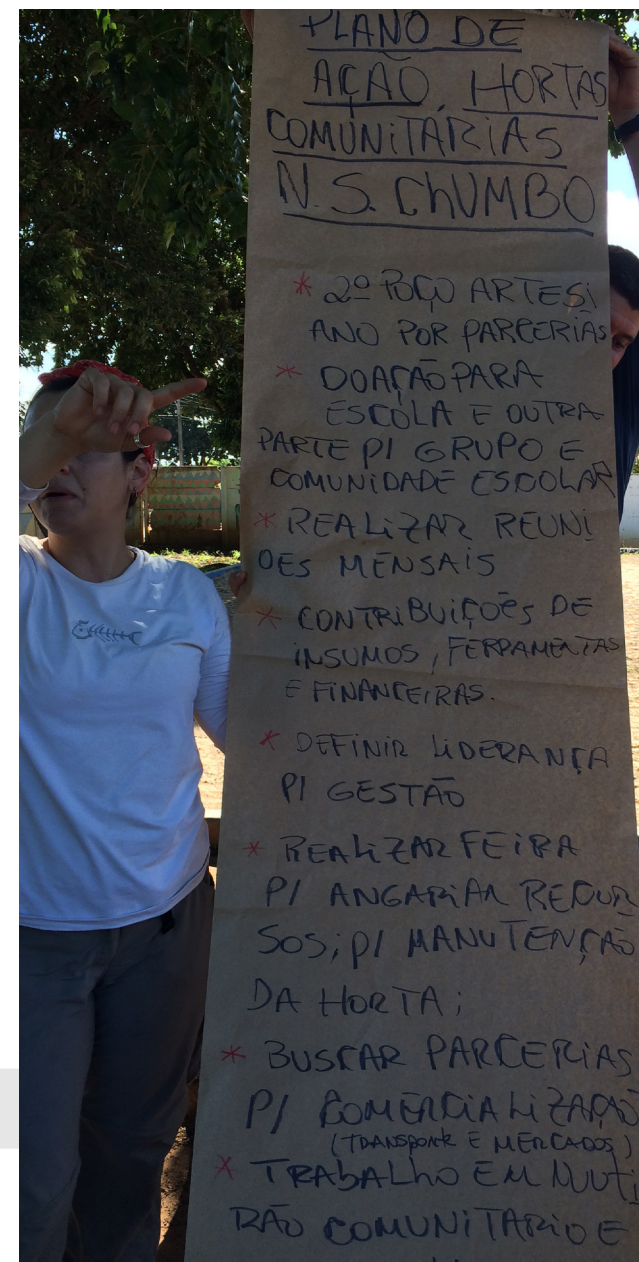 PLANO DE
AÇÃO, HORTAS
COMUNITÁRIAS
N. S. CHUMBO
* 2º POÇO ARTESI
ANO POR PARCERIAS
* DOAÇÃO PARA
ESCOLA E OUTRA
PARTE P/ GRUPO E
COMUNIDADE ESCOLAR
* REALIZAR REUNI
OES MENSAIS
* CONTRIBUIÇÕES DE
INSUMOS, FERRAMENTAS
E FINANCEIRAS.
* DEFINIR LIDERANÇA
P/ GESTÃO
* REALIZAR FEIRA
P/ ANGARIAR RECUR
SOS; P/ MANUTENÇÃO
DA HORTA;
* BUSCAR PARCERIAS
P/ COMERCIALIZAÇÃO
(TRANSPORTE E MERCADOS)
* TRABALHO EM MUTI
RÃO COMUNITARIO E